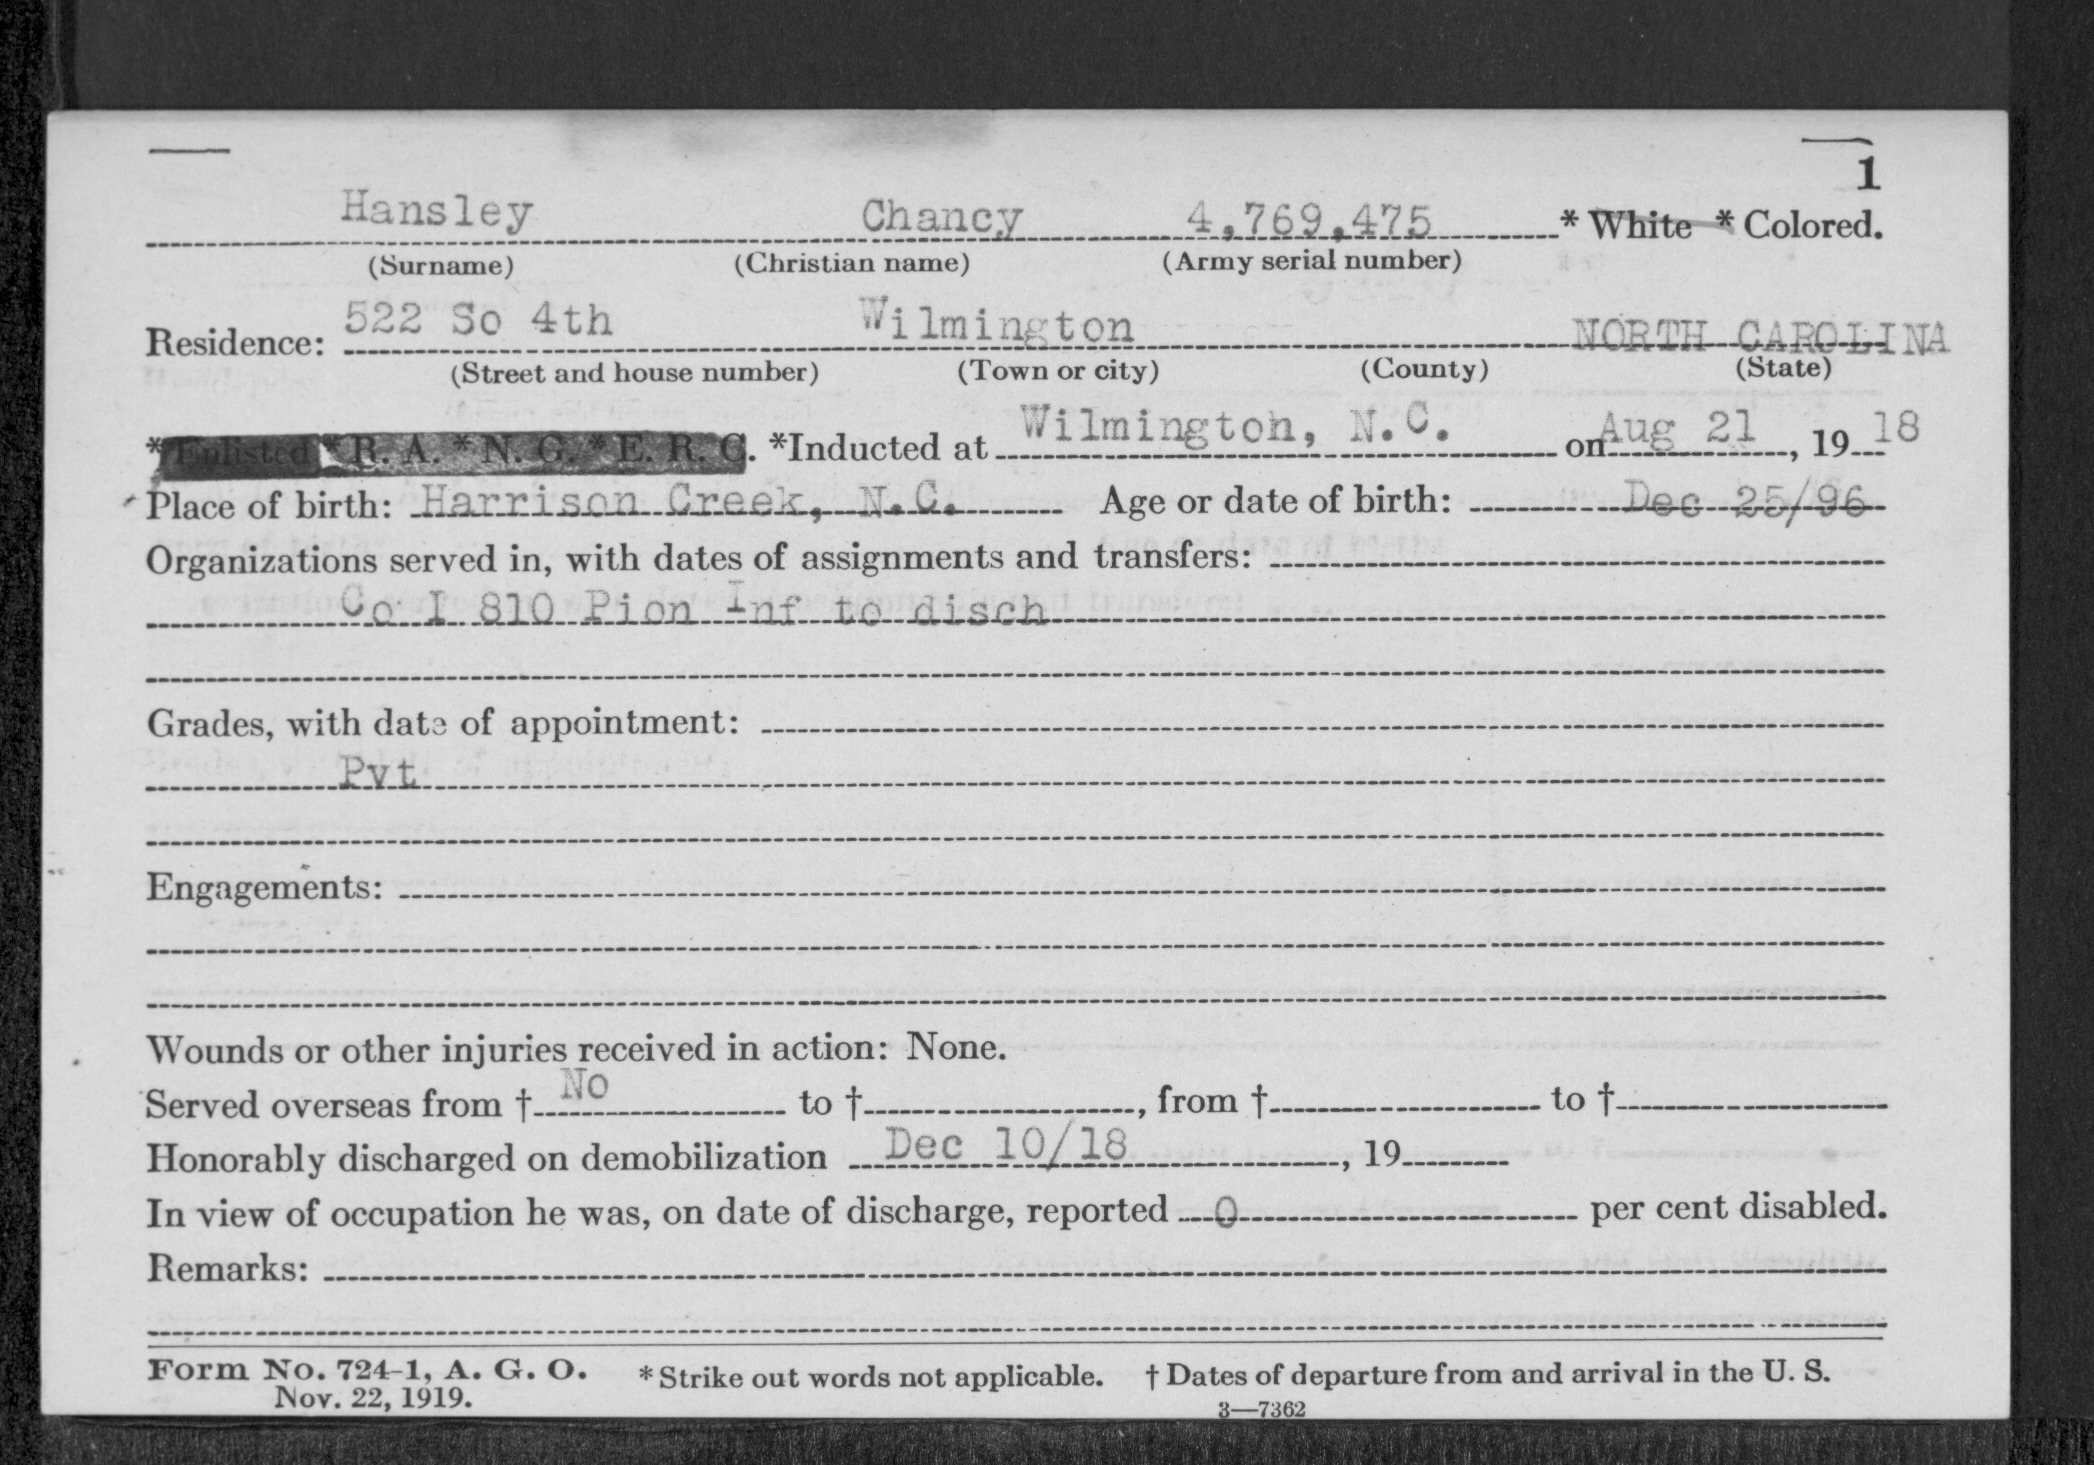 1
Hansley Chancy 4,769,475 * White * Colored.
(Surname) (Christian name) (Army serial number)
Residence: 522 So 4th Wilmington NORTH CAROLINA
(Street and house number) (Town or city) (County) (State)
*Enlisted *R. A. *N. G. *E. R. C. *Inducted at Wilmington, N.C. on Aug 21, 19 18
Place of birth: Harrison Creek, N.C. Age or date of birth: Dec 25/96
Organizations served in, with dates of assignments and transfers:
Co I 810 Pion Inf to disch
Grades, with date of appointment:
Pvt
Engagements:
Wounds or other injuries received in action: None.
Served overseas from † No to †, from † to †
Honorably discharged on demobilization Dec 10/18, 19
In view of occupation he was, on date of discharge, reported 0 per cent disabled.
Remarks:
Form No. 724-1, A. G. O. * Strike out words not applicable. † Dates of departure from and arrival in the U. S.
Nov. 22, 1919. 3—7362